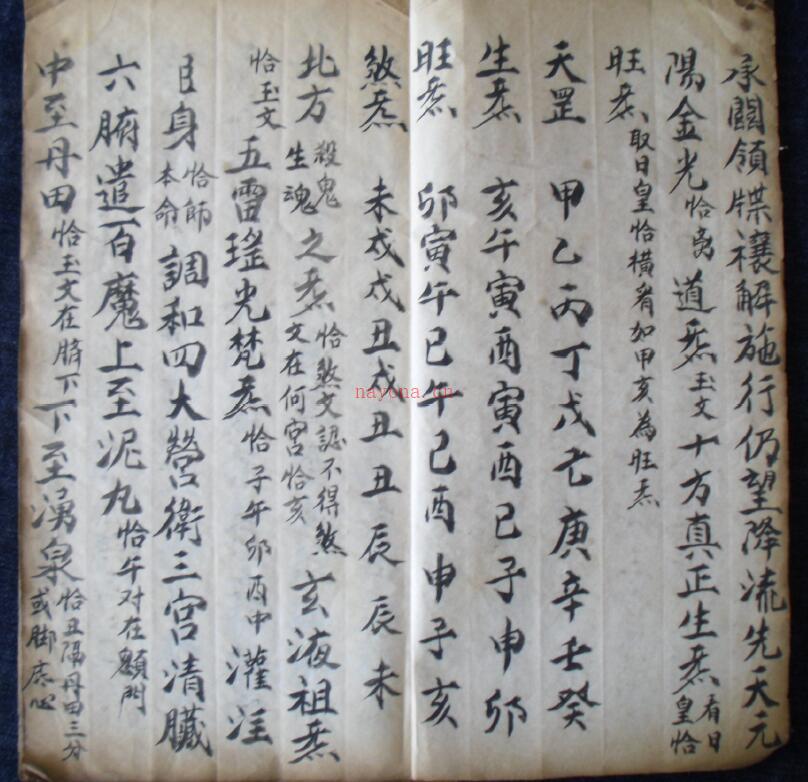 承關領牒禳解施行仍望降流先天元
陽金光恰 道炁玉文十方真正生炁看日皇恰
旺炁取日皇恰橫看如甲亥為旺炁
天罡 甲乙丙丁戊己庚辛壬癸
生炁 亥午寅酉寅酉巳子申卯
旺炁 卯寅午巳午巳酉申子亥
煞炁 未戌戌丑戌丑丑辰辰未
北方殺鬼生魂之炁恰煞文認不得煞文在何宮恰亥玄液祖炁
恰玉文五雷瑤光梵炁恰子午卯酉中灌注
身恰師本命調和四大營衛三宮清臟
六腑遣百魔上至泥丸恰午对在額門
中至丹田恰玉文在臍下下至湧泉恰丑隔丹田三分或脚底心
nayona.cn